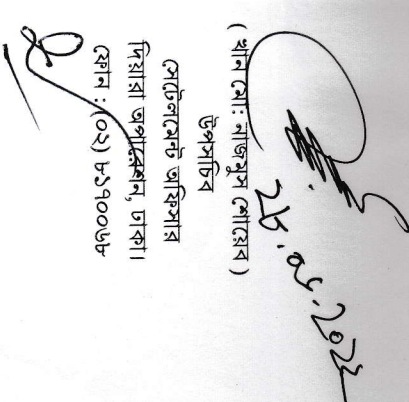 ( খান মো: নাজমুস শোয়েব )
উপসচিব
সেটেলমেন্ট অফিসার
দিয়ারা অপারেশন, ঢাকা।
ফোন : (০২) ৮১৭০০৬৮